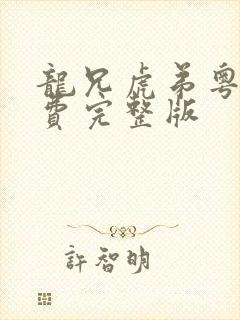 龍兄虎弟粵
費完整版
許智明